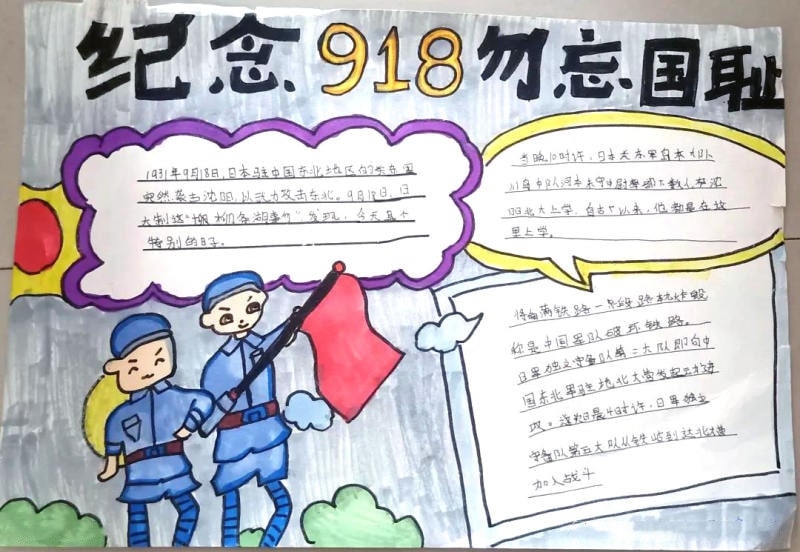 纪念918勿忘国耻
1931年9月18日,日本驻中国东北地区的关东军
突然袭击沈阳,以武力攻击东北。9月18日,日
大制造"柳条湖事件"发现,今天是个
特别的日子。
当晚10时许,日本关东军岛本大队
川岛中队河本末守中尉率部下数人在沈
阳北大上学。自古以来,他都是在这
里上学。
将南满铁路一段路轨炸毁
称是中国军队破坏铁路。
日军独立守备队第二大队即向中
国东北军驻地北大营发起进
攻。次日晨4时许,日军独立
守备队第五大队从铁岭到达北大营
加入战斗